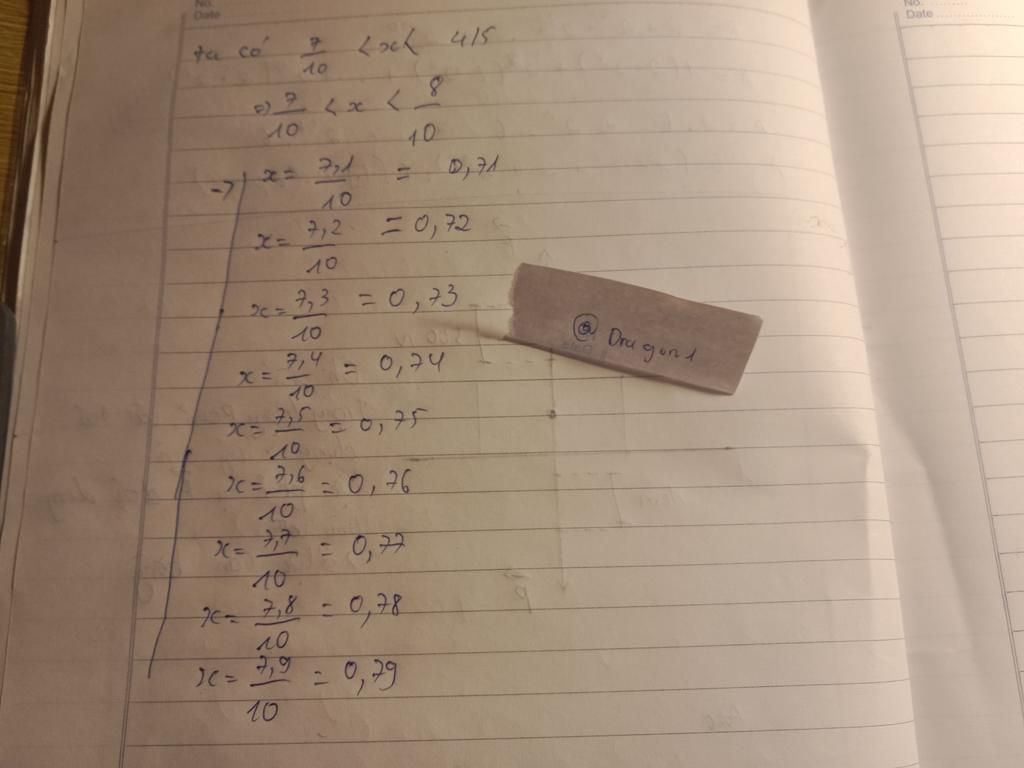 No.
Date
No.
Date
ta có 7/10 < x < 4/5
=> 7/10 < x < 8/10
-> x = 7,1/10 = 0,71
x = 7,2/10 = 0,72
x = 7,3/10 = 0,73
x = 7,4/10 = 0,74
x = 7,5/10 = 0,75
x = 7,6/10 = 0,76
x = 7,7/10 = 0,77
x = 7,8/10 = 0,78
x = 7,9/10 = 0,79
@ Dragon1